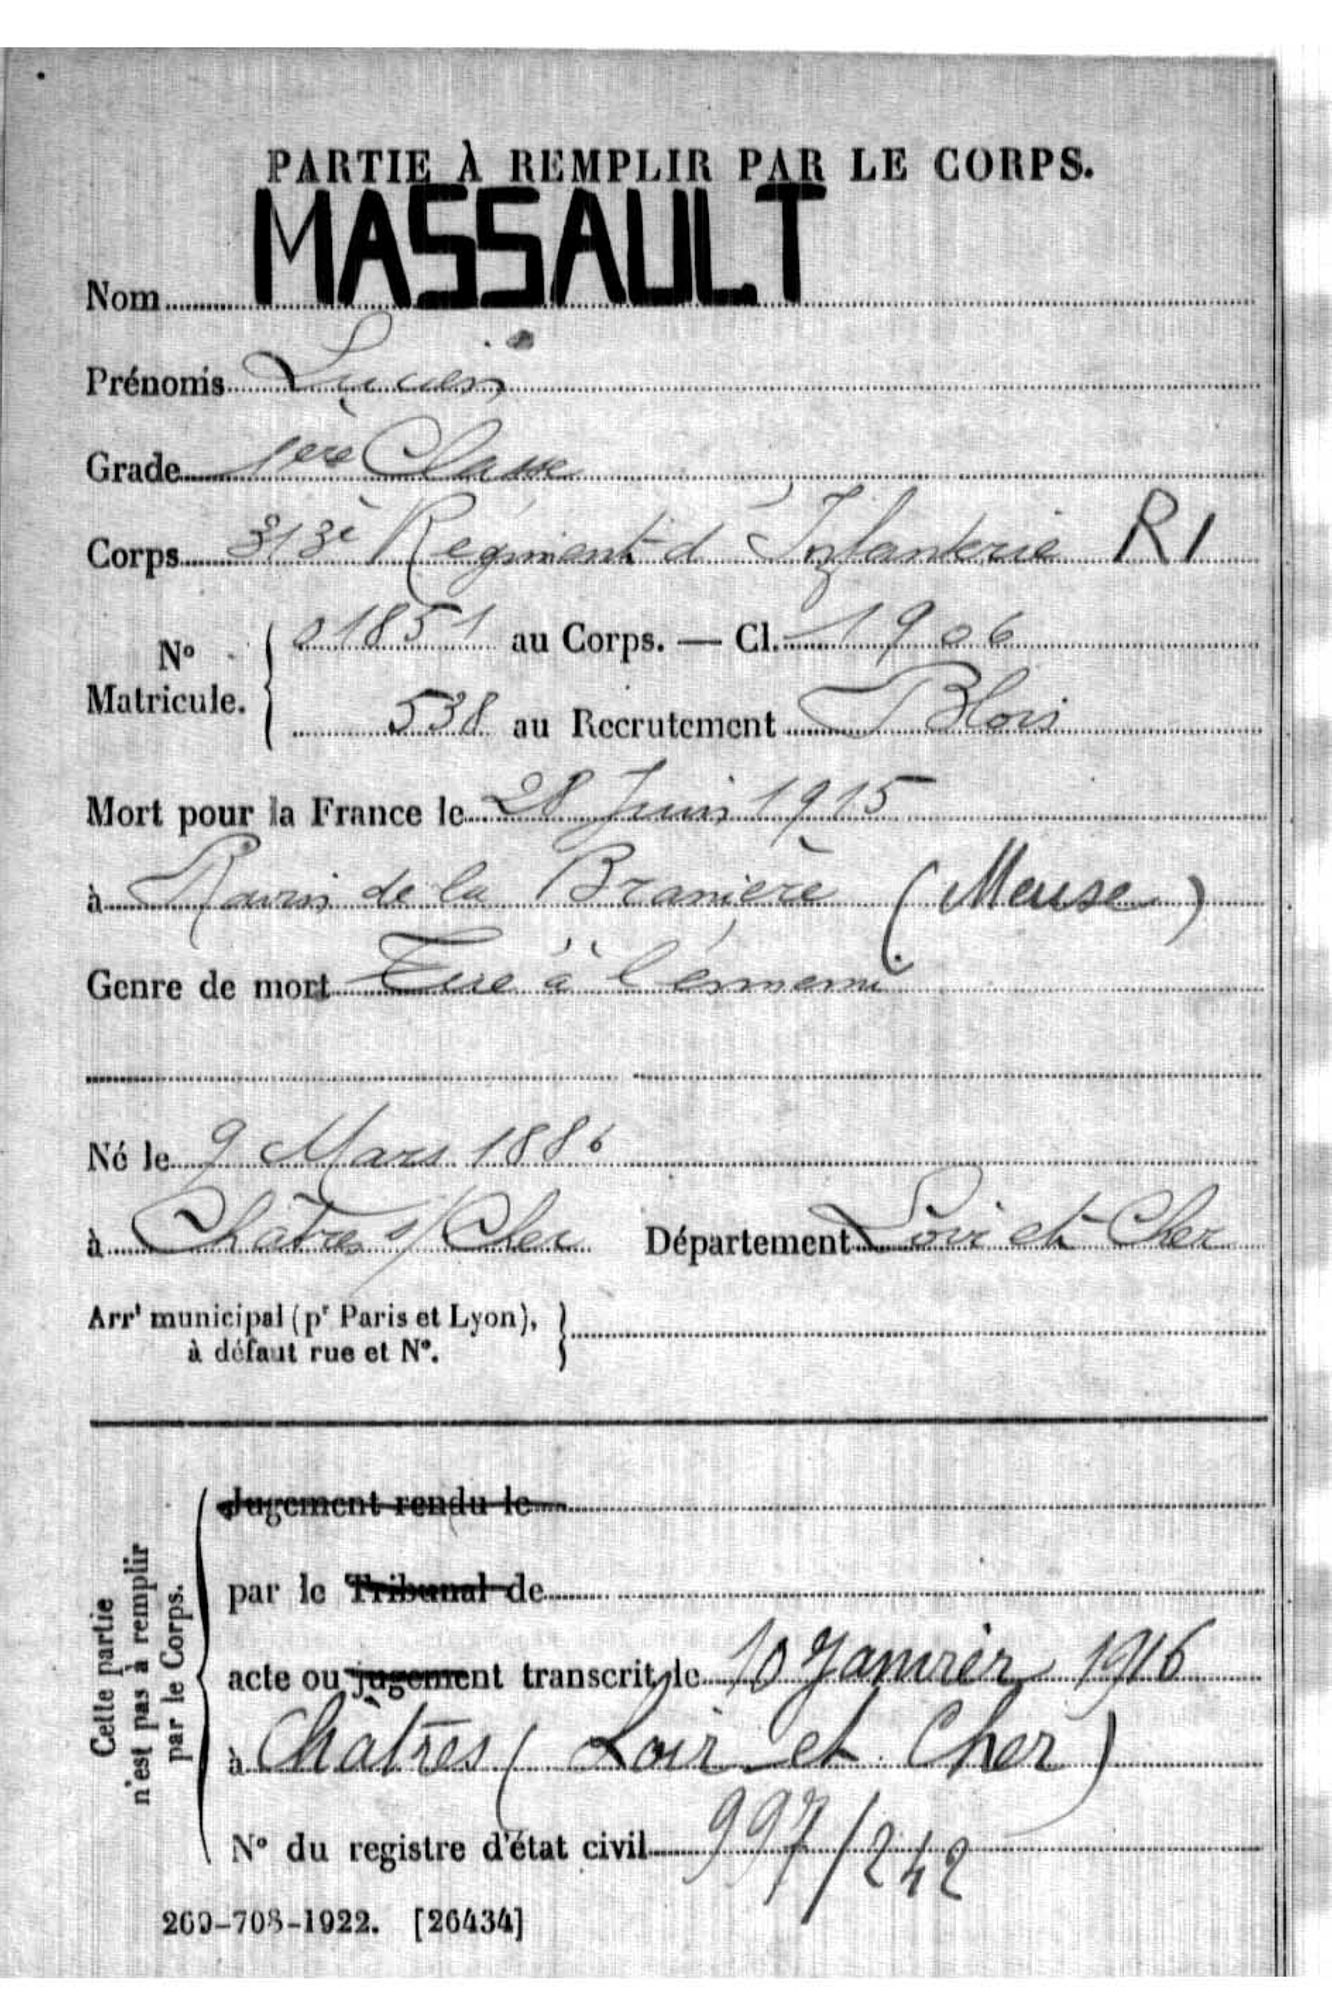 PARTIE À REMPLIR PAR LE CORPS.
Nom MASSAULT
Prénoms Lucien
Grade 1ère Classe
Corps 313e Régiment d'Infanterie RI
No Matricule. 01851 au Corps. — Cl. 1906
538 au Recrutement Blois
Mort pour la France le 28 Juin 1915
à Ravin de la Branière (Meuse)
Genre de mort Tué à l'énnemi
Né le 9 Mars 1886
à Châtres s/ Cher Département Loir et Cher
Arrt municipal (pr Paris et Lyon),
à défaut rue et No.
Cette partie
n'est pas à remplir
par le Corps.
Jugement rendu le
par le Tribunal de
acte ou jugement transcrit le 10 Janvier 1916
à Châtres (Loir et Cher)
No du registre d'état civil 997/242
269-708-1922. [26434]